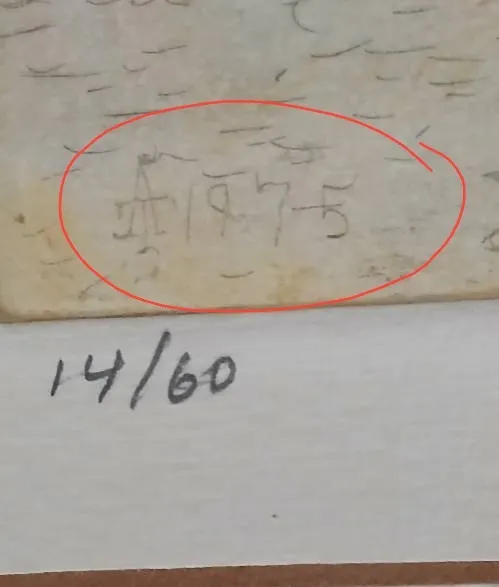 1975
14/60